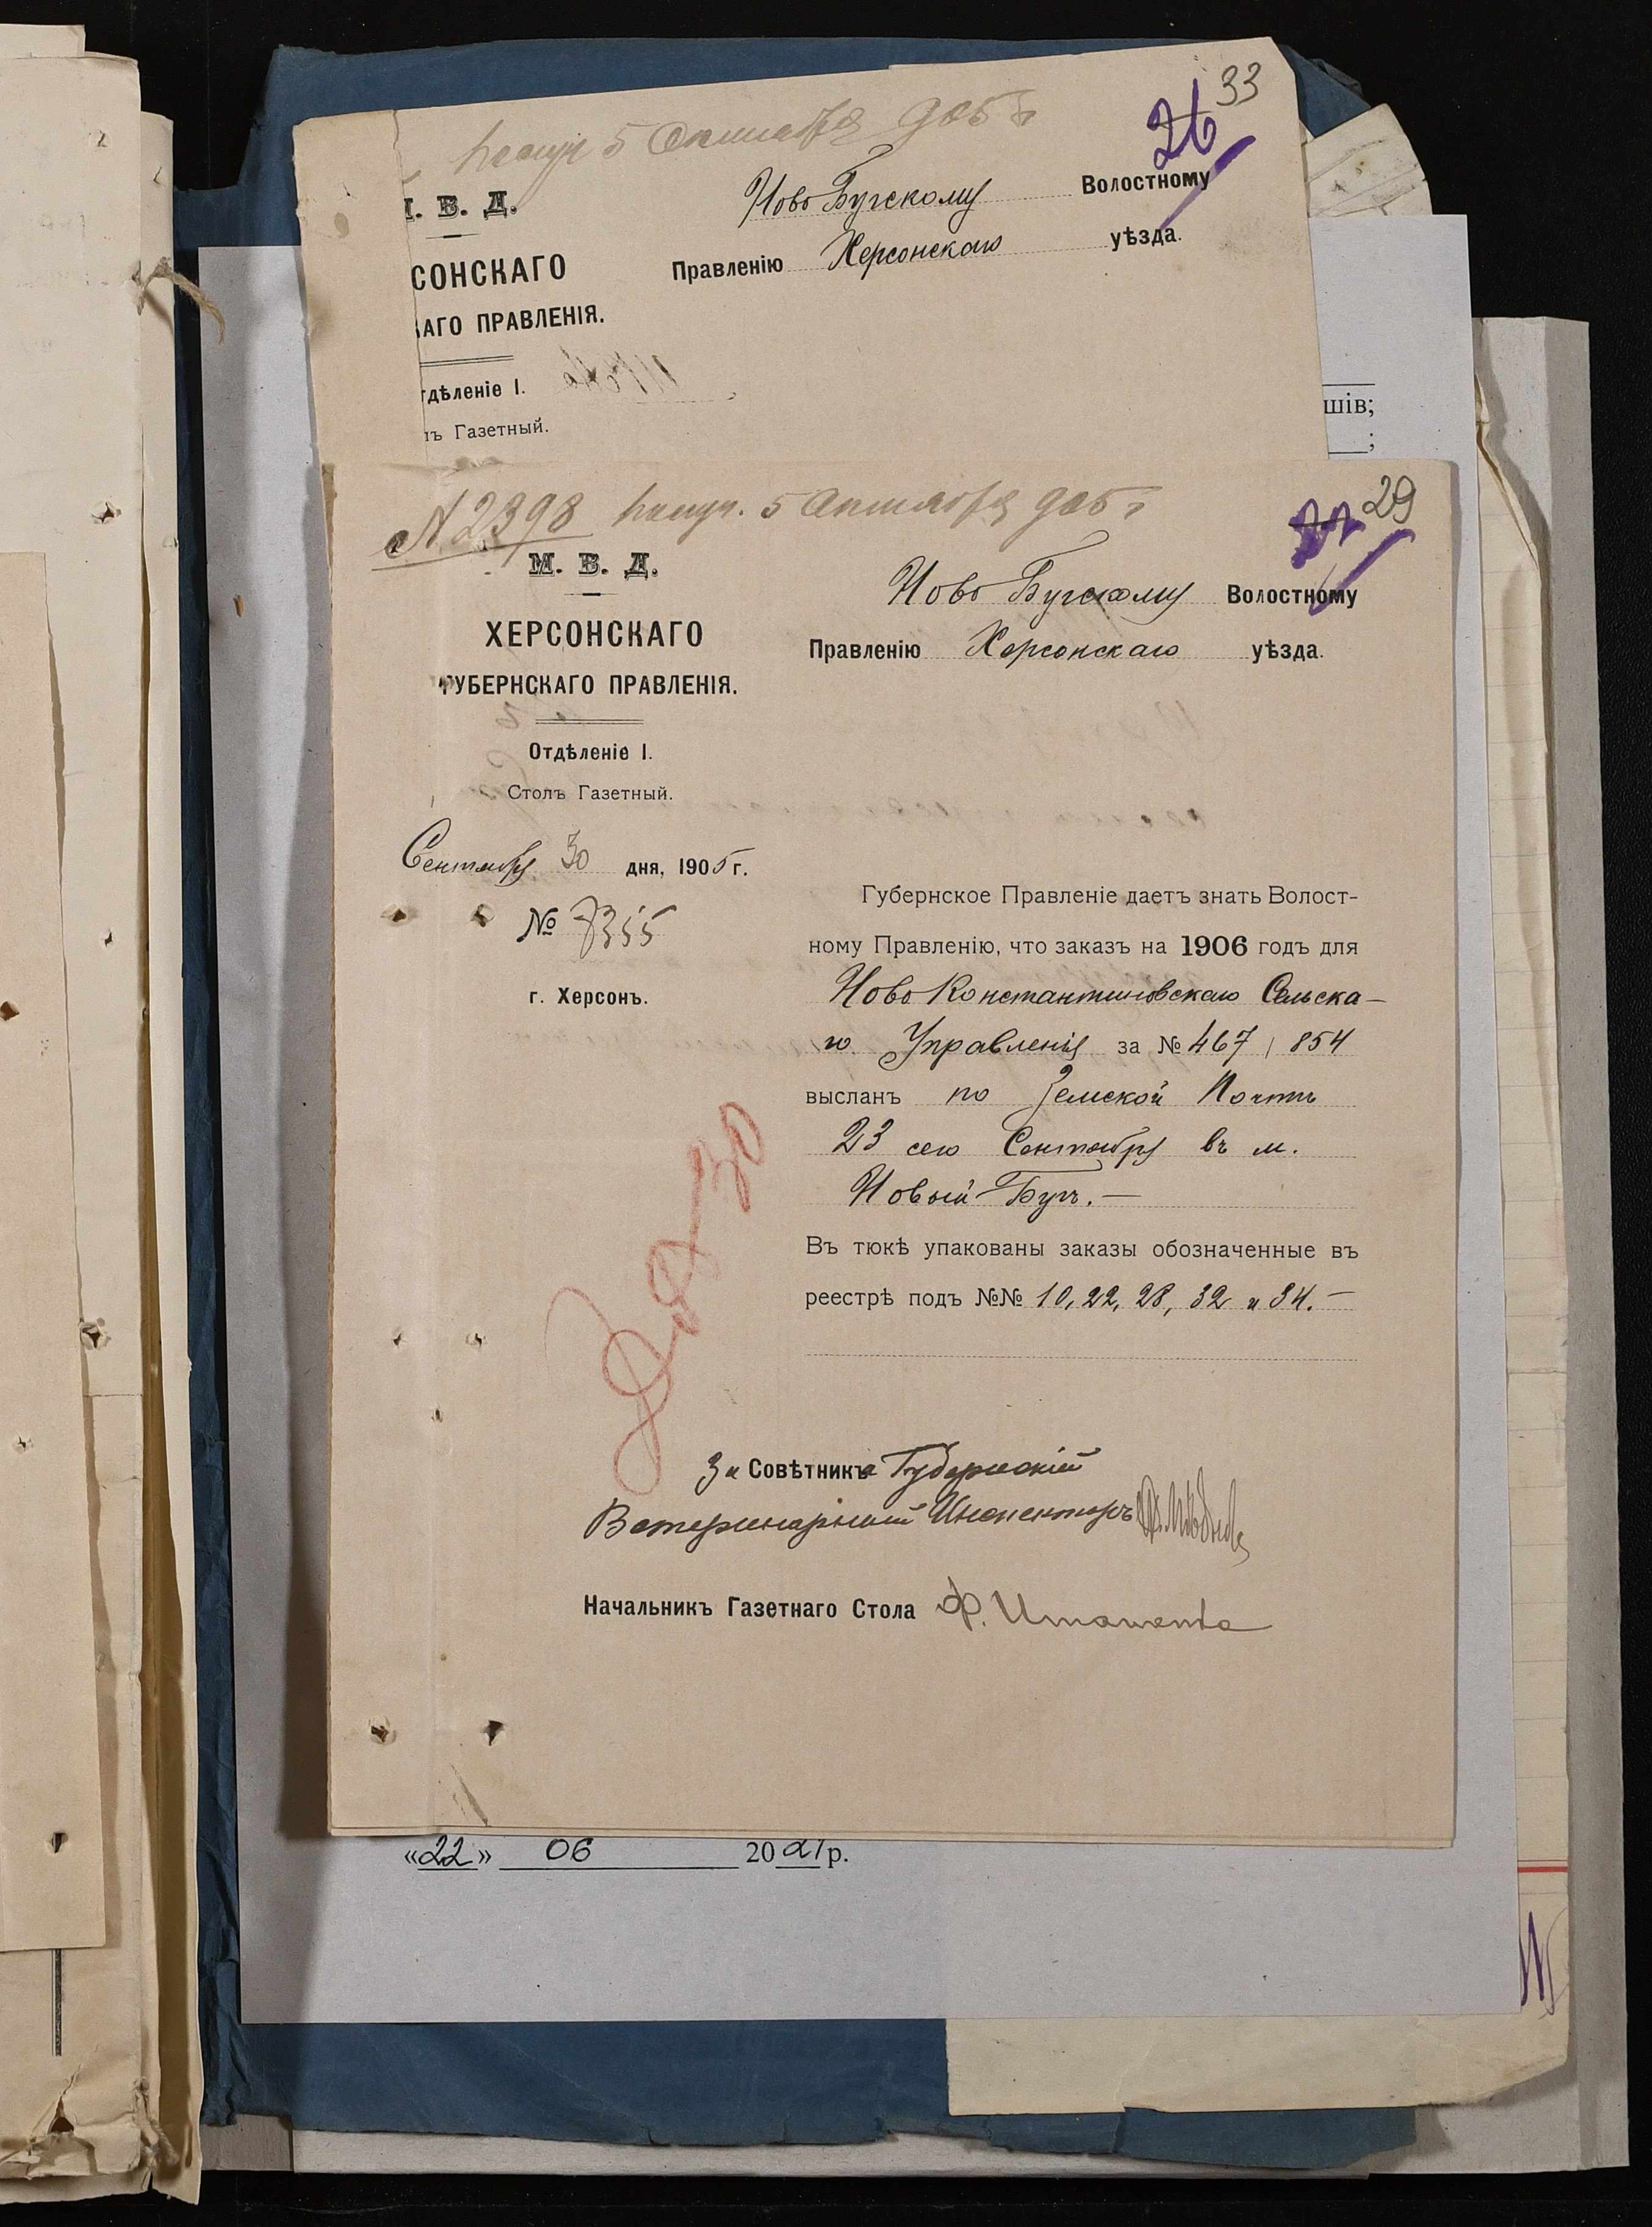 33
26
получ 5 Октября 905 г
В. Д.
Ново Бугскому Волостному
СОНСКАГО
Правленію Херсонскаго уѣзда.
АГО ПРАВЛЕНІЯ.
дѣленіе I.
ъ Газетный.
шів;
;
29
№ 2398 получ. 5 Октября 905 г
М. В. Д.
Ново Бугскому Волостному
ХЕРСОНСКАГО
Правленію Херсонскаго уѣзда.
ГУБЕРНСКАГО ПРАВЛЕНІЯ.
Отдѣленіе I.
Столъ Газетный.
Сентября 30 дня, 1905 г.
№ 7355
г. Херсонъ.
Губернское Правленіе даетъ знать Волост-
ному Правленію, что заказъ на 1906 годъ для
Ново Константиновскаго Сельска-
го Управленія за № 467 / 854
высланъ по Земской Почтѣ
23 сего Сентября въ м.
Новый Бугъ. —
Въ тюкѣ упакованы заказы обозначенные въ
реестрѣ подъ №№ 10, 22, 28, 32 и 34. —
За Совѣтника Губернскій
Ветеринарный Инспекторъ
Начальникъ Газетнаго Стола Ф.
«22» 06 2021 р.